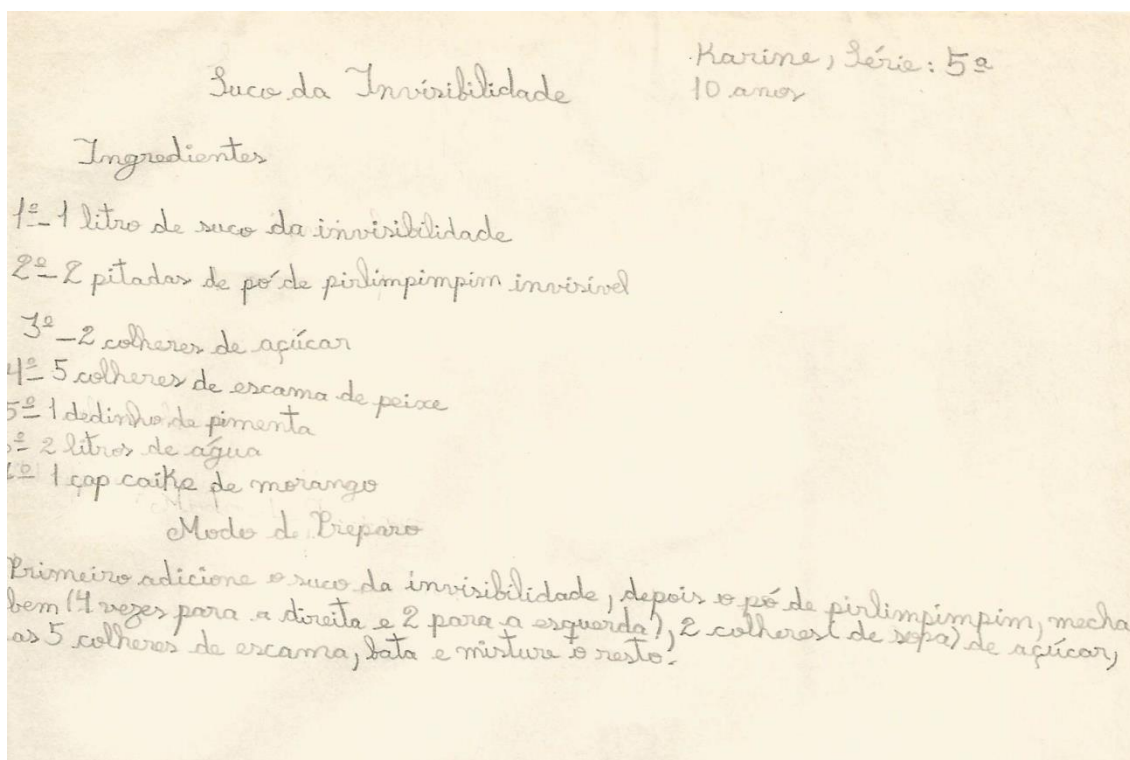 Karine, Série: 5ª
Suco da Invisibilidade
10 anos
Ingredientes
1º- 1 litro de suco da invisibilidade
2º- 2 pitadas de pó de pirlimpimpim invisível
3º- 2 colheres de açúcar
4º- 5 colheres de escama de peixe
5º- 1 dedinho de pimenta
º- 2 litros de água
º- 1 cap caike de morango
Modo de Preparo
Primeiro adicione o suco da invisibilidade, depois o pó de pirlimpimpim, mecha
bem (4 vezes para a direita e 2 para a esquerda), 2 colheres (de sopa) de açúcar,
as 5 colheres de escama, bata e misture o resto.